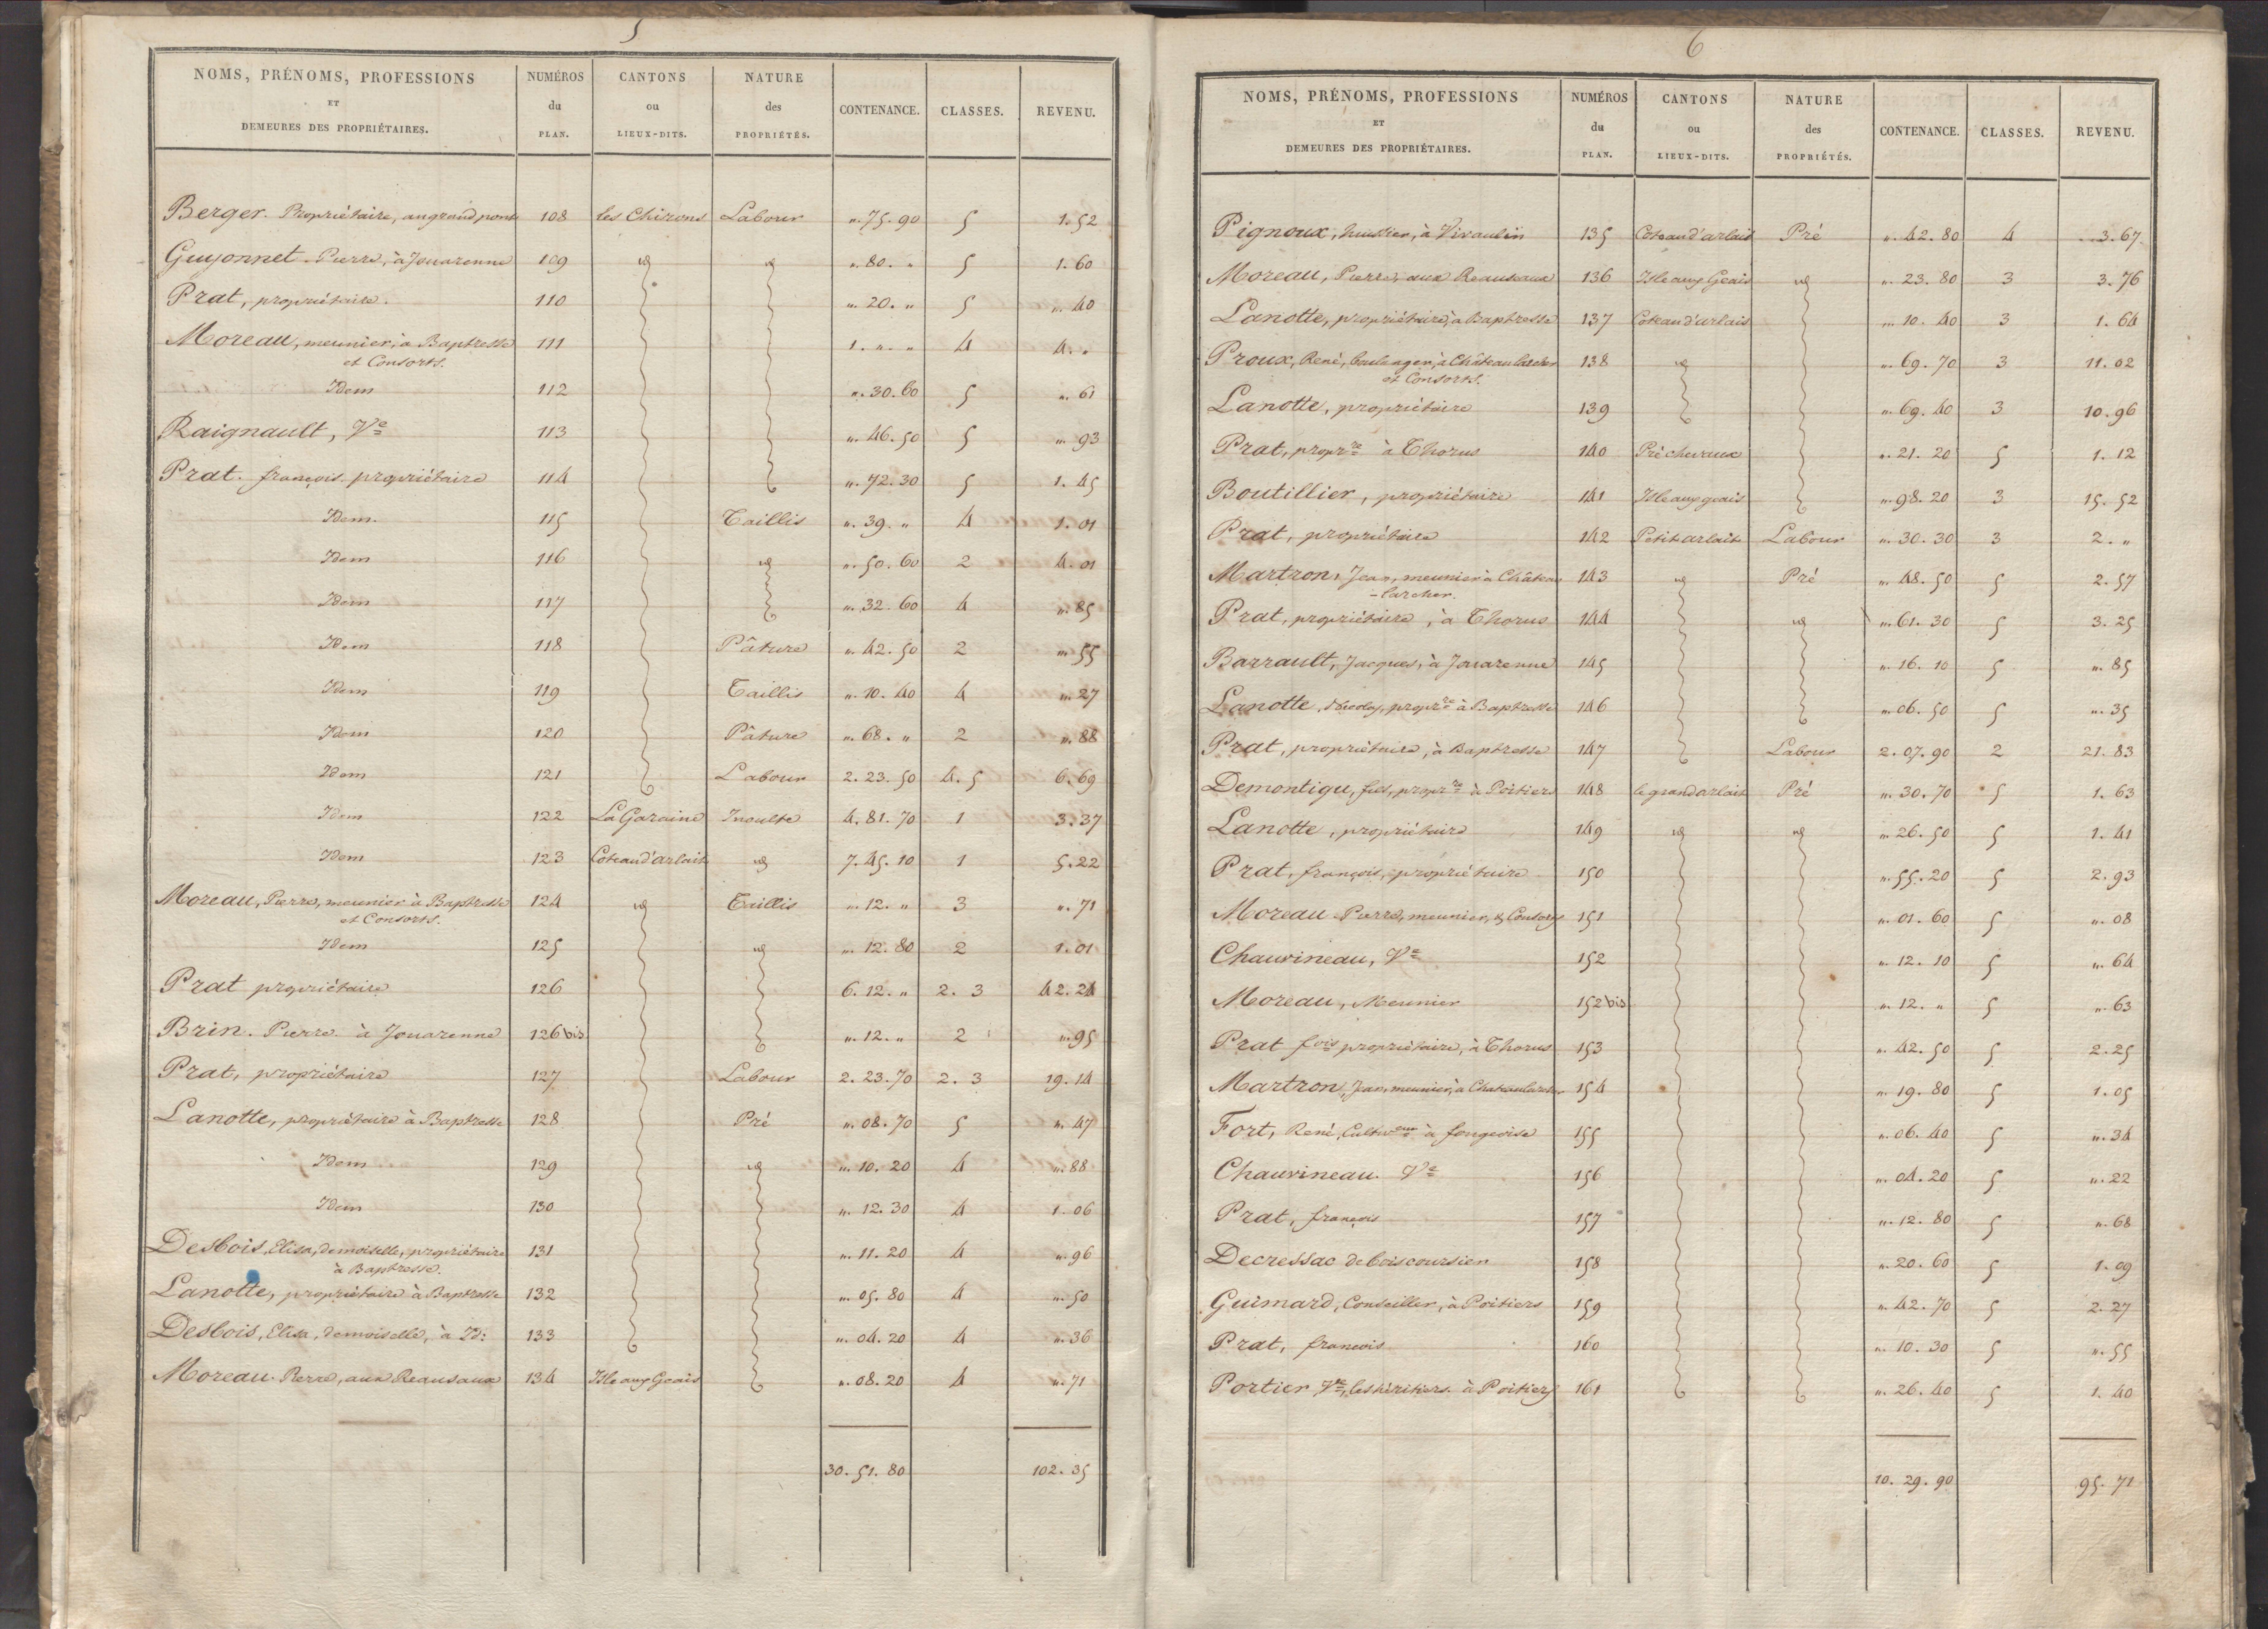 5
NOMS, PRÉNOMS, PROFESSIONS ET DEMEURES DES PROPRIÉTAIRES. NUMÉROS du PLAN. CANTONS ou LIEUX-DITS. NATURE des PROPRIÉTÉS. CONTENANCE. CLASSES. REVENU.
Berger. Propriétaire, au grand pont 108 les Chirons Labour „. 75. 90 5 1. 52
Guyonnet. Pierre, à Jouarenne 109 id id „. 80. „ 5 1. 60
Prat, propriétaire. 110 „. 20. „ 5 „. 40
Moreau, meunier, à Baptresse 111 1. „. „ 4 4. „
et Consorts.
Idem 112 „. 30. 60 5 „. 61
Raignault, Ve 113 „. 46. 50 5 „. 93
Prat. françois. propriétaire 114 „. 72. 30 5 1. 45
Idem. 115 Taillis „. 39. „ 4 1. 01
Idem 116 id „. 50. 60 2 4. 01
Idem 117 „. 32. 60 4 „. 85
Idem 118 Pâture „. 42. 50 2 „. 55
Idem 119 Taillis „. 10. 40 4 „. 27
Idem 120 Pâture „. 68. „ 2 „. 88
Idem 121 Labour 2. 23. 50 4. 5 6. 69
Idem 122 La Garaine Inculte 4. 81. 70 1 3. 37
Idem 123 Coteau d'arlait id 7. 45. 10 1 5. 22
Moreau, Pierre, meunier à Baptresse 124 id Taillis „. 12. „ 3 „. 71
et Consorts.
Idem 125 id „. 12. 80 2 1. 01
Prat propriétaire 126 6. 12. „ 2. 3 42. 24
Brin. Pierre. à Jouarenne 126 bis „. 12. „ 2 „. 95
Prat, propriétaire 127 Labour 2. 23. 70 2. 3 19. 14
Lanotte, propriétaire à Baptresse 128 Pré „. 08. 70 5 „. 47
Idem 129 id „. 10. 20 4 „. 88
Idem 130 „. 12. 30 4 1. 06
Desbois, Elisa, demoiselle, propriétaire 131 „. 11. 20 4 „. 96
à Baptresse.
Lanotte, propriétaire à Baptresse 132 „. 05. 80 4 „. 50
Desbois, Elisa, demoiselle, à Id: 133 „. 04. 20 4 „. 36
Moreau. Pierre, aux Reausaux 134 Isle aux Geais „. 08. 20 4 „. 71
30. 51. 80 102. 35
6
NOMS, PRÉNOMS, PROFESSIONS ET DEMEURES DES PROPRIÉTAIRES. NUMÉROS du PLAN. CANTONS ou LIEUX-DITS. NATURE des PROPRIÉTÉS. CONTENANCE. CLASSES. REVENU.
Pignoux, huissier, à Vivaulin 135 Coteau d'arlait Pré „. 42. 80 4 3. 67
Moreau, Pierre, aux Reauseaux 136 Isle aux Geais id „. 23. 80 3 3. 76
Lanotte, propriétaire, à Baptresse 137 Coteau d'arlait „. 10. 40 3 1. 64
Proux, René, boulanger, à Châteaularcher 138 id „. 69. 70 3 11. 02
et Consorts.
Lanotte, propriétaire 139 „. 69. 40 3 10. 96
Prat, proprre à Thorus 140 Pré chevaux „. 21. 20 5 1. 12
Boutillier, propriétaire 141 Isle aux geais „. 98. 20 3 15. 52
Prat, propriétaire 142 Petit arlait Labour „. 30. 30 3 2. „
Martron, Jean, meunier à Château 143 id Pré „. 48. 50 5 2. 57
-larcher.
Prat, propriétaire, à Thorus 144 id „. 61. 30 5 3. 25
Barrault, Jacques, à Jouarenne 145 „. 16. 10 5 „. 85
Lanotte, Nicolas, proprre à Baptresse 146 „. 06. 50 5 „. 35
Prat, propriétaire, à Baptresse 147 Labour 2. 07. 90 2 21. 83
Demontigu, fils, proprre à Poitiers 148 le grand arlait Pré „. 30. 70 5 1. 63
Lanotte, propriétaire 149 id id „. 26. 50 5 1. 41
Prat, françois, propriétaire 150 „. 55. 20 5 2. 93
Moreau Pierre, meunier, & Consorts 151 „. 01. 60 5 „. 08
Chauvineau, Ve 152 „. 12. 10 5 „. 64
Moreau, Meunier 152 bis „. 12. „ 5 „. 63
Prat fois propriétaire, à Thorus 153 „. 42. 50 5 2. 25
Martron, Jean, meunier, à Chateaularcher 154 „. 19. 80 5 1. 05
Fort, René, Cultiveur à fongeoise 155 „. 06. 40 5 „. 34
Chauvineau. Ve 156 „. 04. 20 5 „. 22
Prat, françois 157 „. 12. 80 5 „. 68
Decressac de boiscoursier 158 „. 20. 60 5 1. 09
Guimard, Conseiller, à Poitiers 159 „. 42. 70 5 2. 27
Prat, francois 160 „. 10. 30 5 „. 55
Portier Ve, les héritiers. à Poitiers 161 „. 26. 40 5 1. 40
10. 29. 90 95. 71